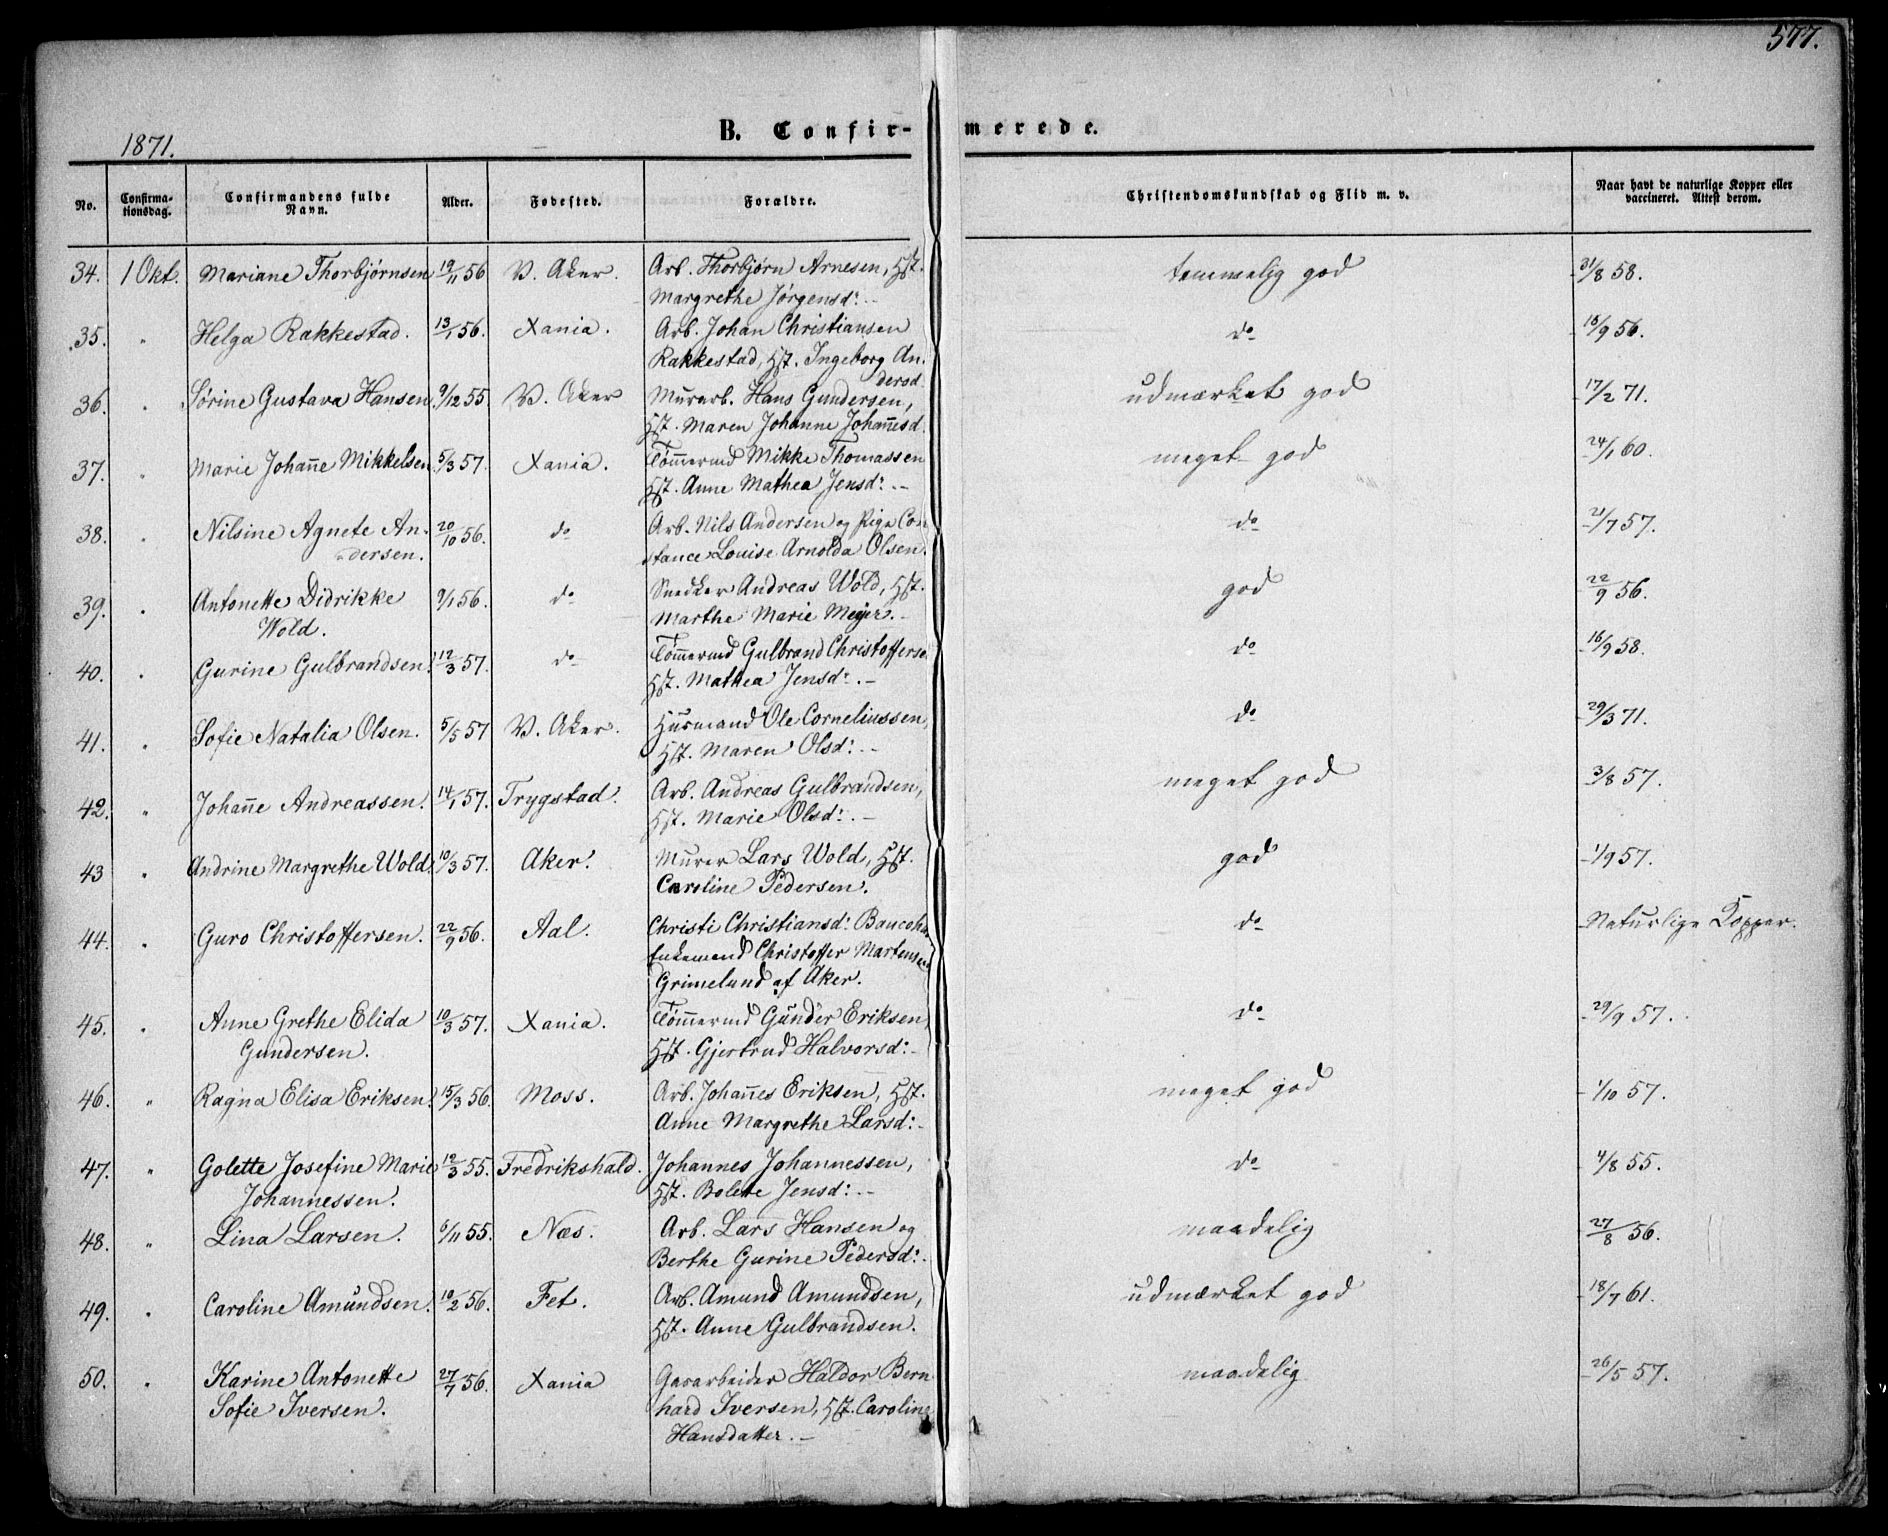 577.
1871.
B. Confir- merede.
No. Confirma-tionsdag. Confirmandens fulde Navn. Alder. Fødested. Forældre. Christendomskundskab og Flid m. v. Naar havt de naturlige Kopper eller vaccineret. Attest derom.
34. 1 Okt. Mariane Thorbjørnsen 19/11 56 V. Aker. Arb. Thorbjørn Arnesen, Hst. temmelig god 31/8 58.
Margrethe Jørgensd: -
35. " Helga Rakkestad. 13/1 56. Xania. Arb. Johan Christiansen do 18/9 56.
Rakkestad, Hst. Ingeborg An-
dersd.
36. " Sørine Gustava Hansen 9/12 55 V. Aker Murarb. Hans Gundersen, udmærket god 17/2 71.
Hst. Maren Johanne Johannesd.
37. " Marie Johanne Mikkelsen 5/3 57. Xania. Tømmermd Mikke Thomassen meget god 24/1 60.
Hst. Anne Mathea Jensd: -
38. " Nilsine Agnete An- 20/10 56. do Arb. Nils Andersen og Pige Con- do 21/7 57.
dersen. stance Louise Arnolda Olsen.
39. " Antonette Didrikke 9/1 56. do Snedker Andreas Wold, Hst. god 22/9 56.
Wold. Marthe Marie Meyer. -
40. " Gurine Gulbrandsen. 12/3 57. do Tømmermd Gulbrand Christofferse do 16/9 58.
Hst. Mathea Jensd: -
41. " Sofie Natalia Olsen. 5/5 57 V. Aker. Husmand Ole Corneliussen, do 29/3 71.
Hst. Maren Olsd: -
42. " Johanne Andreassen. 14/1 57. Trygstad. Arb. Andreas Gulbrandsen, meget god 3/8 57.
Hst. Marie Olsd: -
43 " Andrine Margrethe Wold. 10/3 57. Aker. Murer Lars Wold, Hst. god 1/9 57.
Caroline Pedersen.
44. " Guro Christoffersen. 22/9 56. Aal. Christi Christiansd: do Naturlige Kopper.
Enkemand Christoffer Martensen
Grimelund af Aker.
45. " Anne Grethe Elida 10/3 57. Xania. Tømmermd Gunder Eriksen, do 29/9 57.
Gundersen. Hst. Gjertrud Halvorsd: -
46. " Ragna Elisa Eriksen. 15/3 56. Moss. Arb. Johannes Eriksen, Hst. meget god 1/10 57.
Anne Margrethe Larsd: -
47. " Golette Josefine Marie 12/3 55. Fredrikshald. Johannes Johannessen, do 4/8 55.
Johannessen. Hst. Bolette Jensd: -
48. " Lina Larsen. 6/11 55. Næs. Arb. Lars Hansen og maadelig 27/8 56.
Berthe Gurine Pedersd: -
49. " Caroline Amundsen. 10/2 56. Fet. Arb. Amund Amundsen, udmærket god 18/7 61.
Hst. Anne Gulbrandsen.
50. " Karine Antonette 27/7 56. Xania Gasarbeider Haldor Bern maadelig 26/5 57.
Sofie Iversen. hard Iversen, Hst. Caroline
Hansdatter. -